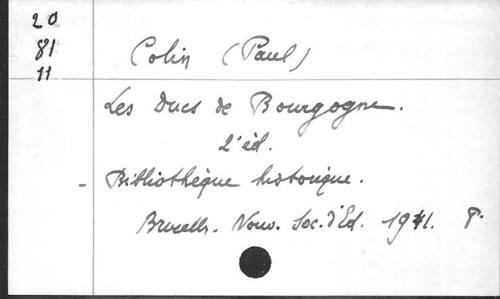 20
81
11
Colin (Paul)
Les Ducs de Bourgogne.
2e éd.
- Bibliothèque historique.
Bruxelles. Nouv. Soc. d'Ed. 1941. 8.